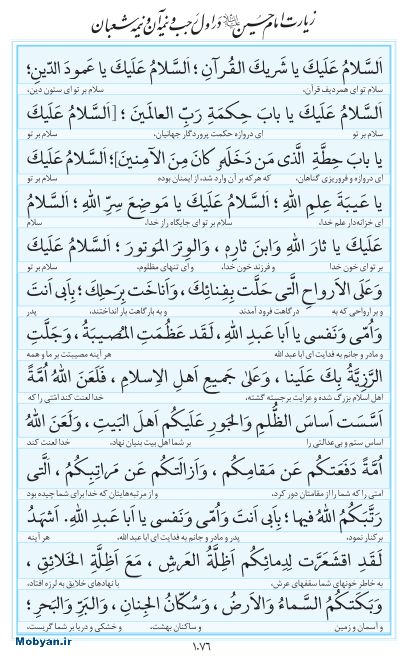 زیارت امام حسین علیه‌السلام در اول رجب و نیمه آن و نیمه شعبان
اَلسَّلامُ عَلَیكَ یا شَریكَ القُرآنِ ؛ اَلسَّلامُ عَلَیكَ یا عَمودَ الدّینِ؛
سلام تو ای همردیف قرآن، سلام بر تو ای ستون دین،
اَلسَّلامُ عَلَیكَ یا بابَ حِکمَةِ رَبِّ العالَمینَ ؛ [اَلسَّلامُ عَلَیكَ
سلام بر تو ای دروازه حکمت پروردگار جهانیان، سلام بر تو
یا بابَ حِطَّةِ الَّذی مَن دَخَلَهُ کانَ مِنَ الآمِنینَ]؛ اَلسَّلامُ عَلَیكَ
ای دروازه و فروریزی گناهان، که هرکه بر آن وارد شد، از ایمنان بوده سلام بر تو
یا عَیبَةَ عِلمِ اللهِ ؛ اَلسَّلامُ عَلَیكَ یا مَوضِعَ سِرِّ اللهِ ؛ اَلسَّلامُ
ای خزانه‌دار علم خدا، سلام بر تو ای جایگاه راز خدا، سلام
عَلَیكَ یا ثارَ اللهِ وَابنَ ثارِهِ ، وَالوِترَ المَوتورَ ؛ اَلسَّلامُ عَلَیكَ
بر تو ای خون خدا و فرزند خون خدا، و ای تنهای مظلوم، سلام بر تو
وَعَلَى الاَرواحِ الَّتی حَلَّت بِفِنائِكَ ، وَاَناخَت بِرَحلِكَ؛ بِاَبی اَنتَ
و بر ارواحی که به درگاهت فرود آمدند و به بارگاهت بار انداختند، پدر
وَاُمّی وَنَفسی یا اَبا عَبدِ اللهِ ، لَقَد عَظُمَتِ المُصیبَةُ ، وَجَلَّتِ
و مادر و جانم به فدایت ای ابا عبد الله هر آینه مصیبتت بر ما و همه
الرَّزِیَّةُ بِكَ عَلَینا ، وَعَلىٰ جَمیعِ اَهلِ الاِسلامِ ، فَلَعَنَ اللهُ اُمَّةً
اهل اسلام بزرگ شده و عزایت برجسته گشته، خدا لعنت کند امتی را که
اَسَّسَت اَساسَ الظُّلمِ وَالجَورِ عَلَیكُم اَهلَ البَیتِ ، وَلَعَنَ اللهُ
اساس ستم و بی‌عدالتی را بر شما اهل بیت بنیان نهاد، خدا لعنت کند
اُمَّةً دَفَعَتكُم عَن مَقامِكُم ، وَاَزالَتكُم عَن مَراتِبِكُمُ ، الَّتی
امتی را که شما را از مقامتان دور کرد، و از مرتبه‌هایتان که خدا برای شما چیده بود
رَتَّبَكُمُ اللهُ فیها ؛ بِاَبی اَنتَ وَاُمّی وَنَفسی یا اَبا عَبدِ اللهِ. اَشهَدُ
برکنار نمود، پدر و مادر و جانم به فدایت ای ابا عبد الله، هر آینه
لَقَدِ اقشَعَرَّت لِدِمائِكُم اَظِلَّةُ العَرشِ ، مَعَ اَظِلَّةِ الخَلائِقِ ،
به خاطر خونهای شما سقفهای عرش، با نهادهای خلایق به لرزه افتاد،
وَبَكَتكُمُ السَّماءُ وَالاَرضُ ، وَسُكّانُ الجِنانِ ، وَالبَرِّ وَالبَحرِ ؛
و آسمان و زمین و ساکنان بهشت، و خشکی و دریا بر شما گریست،
١٠٧٦
Mobyan.ir